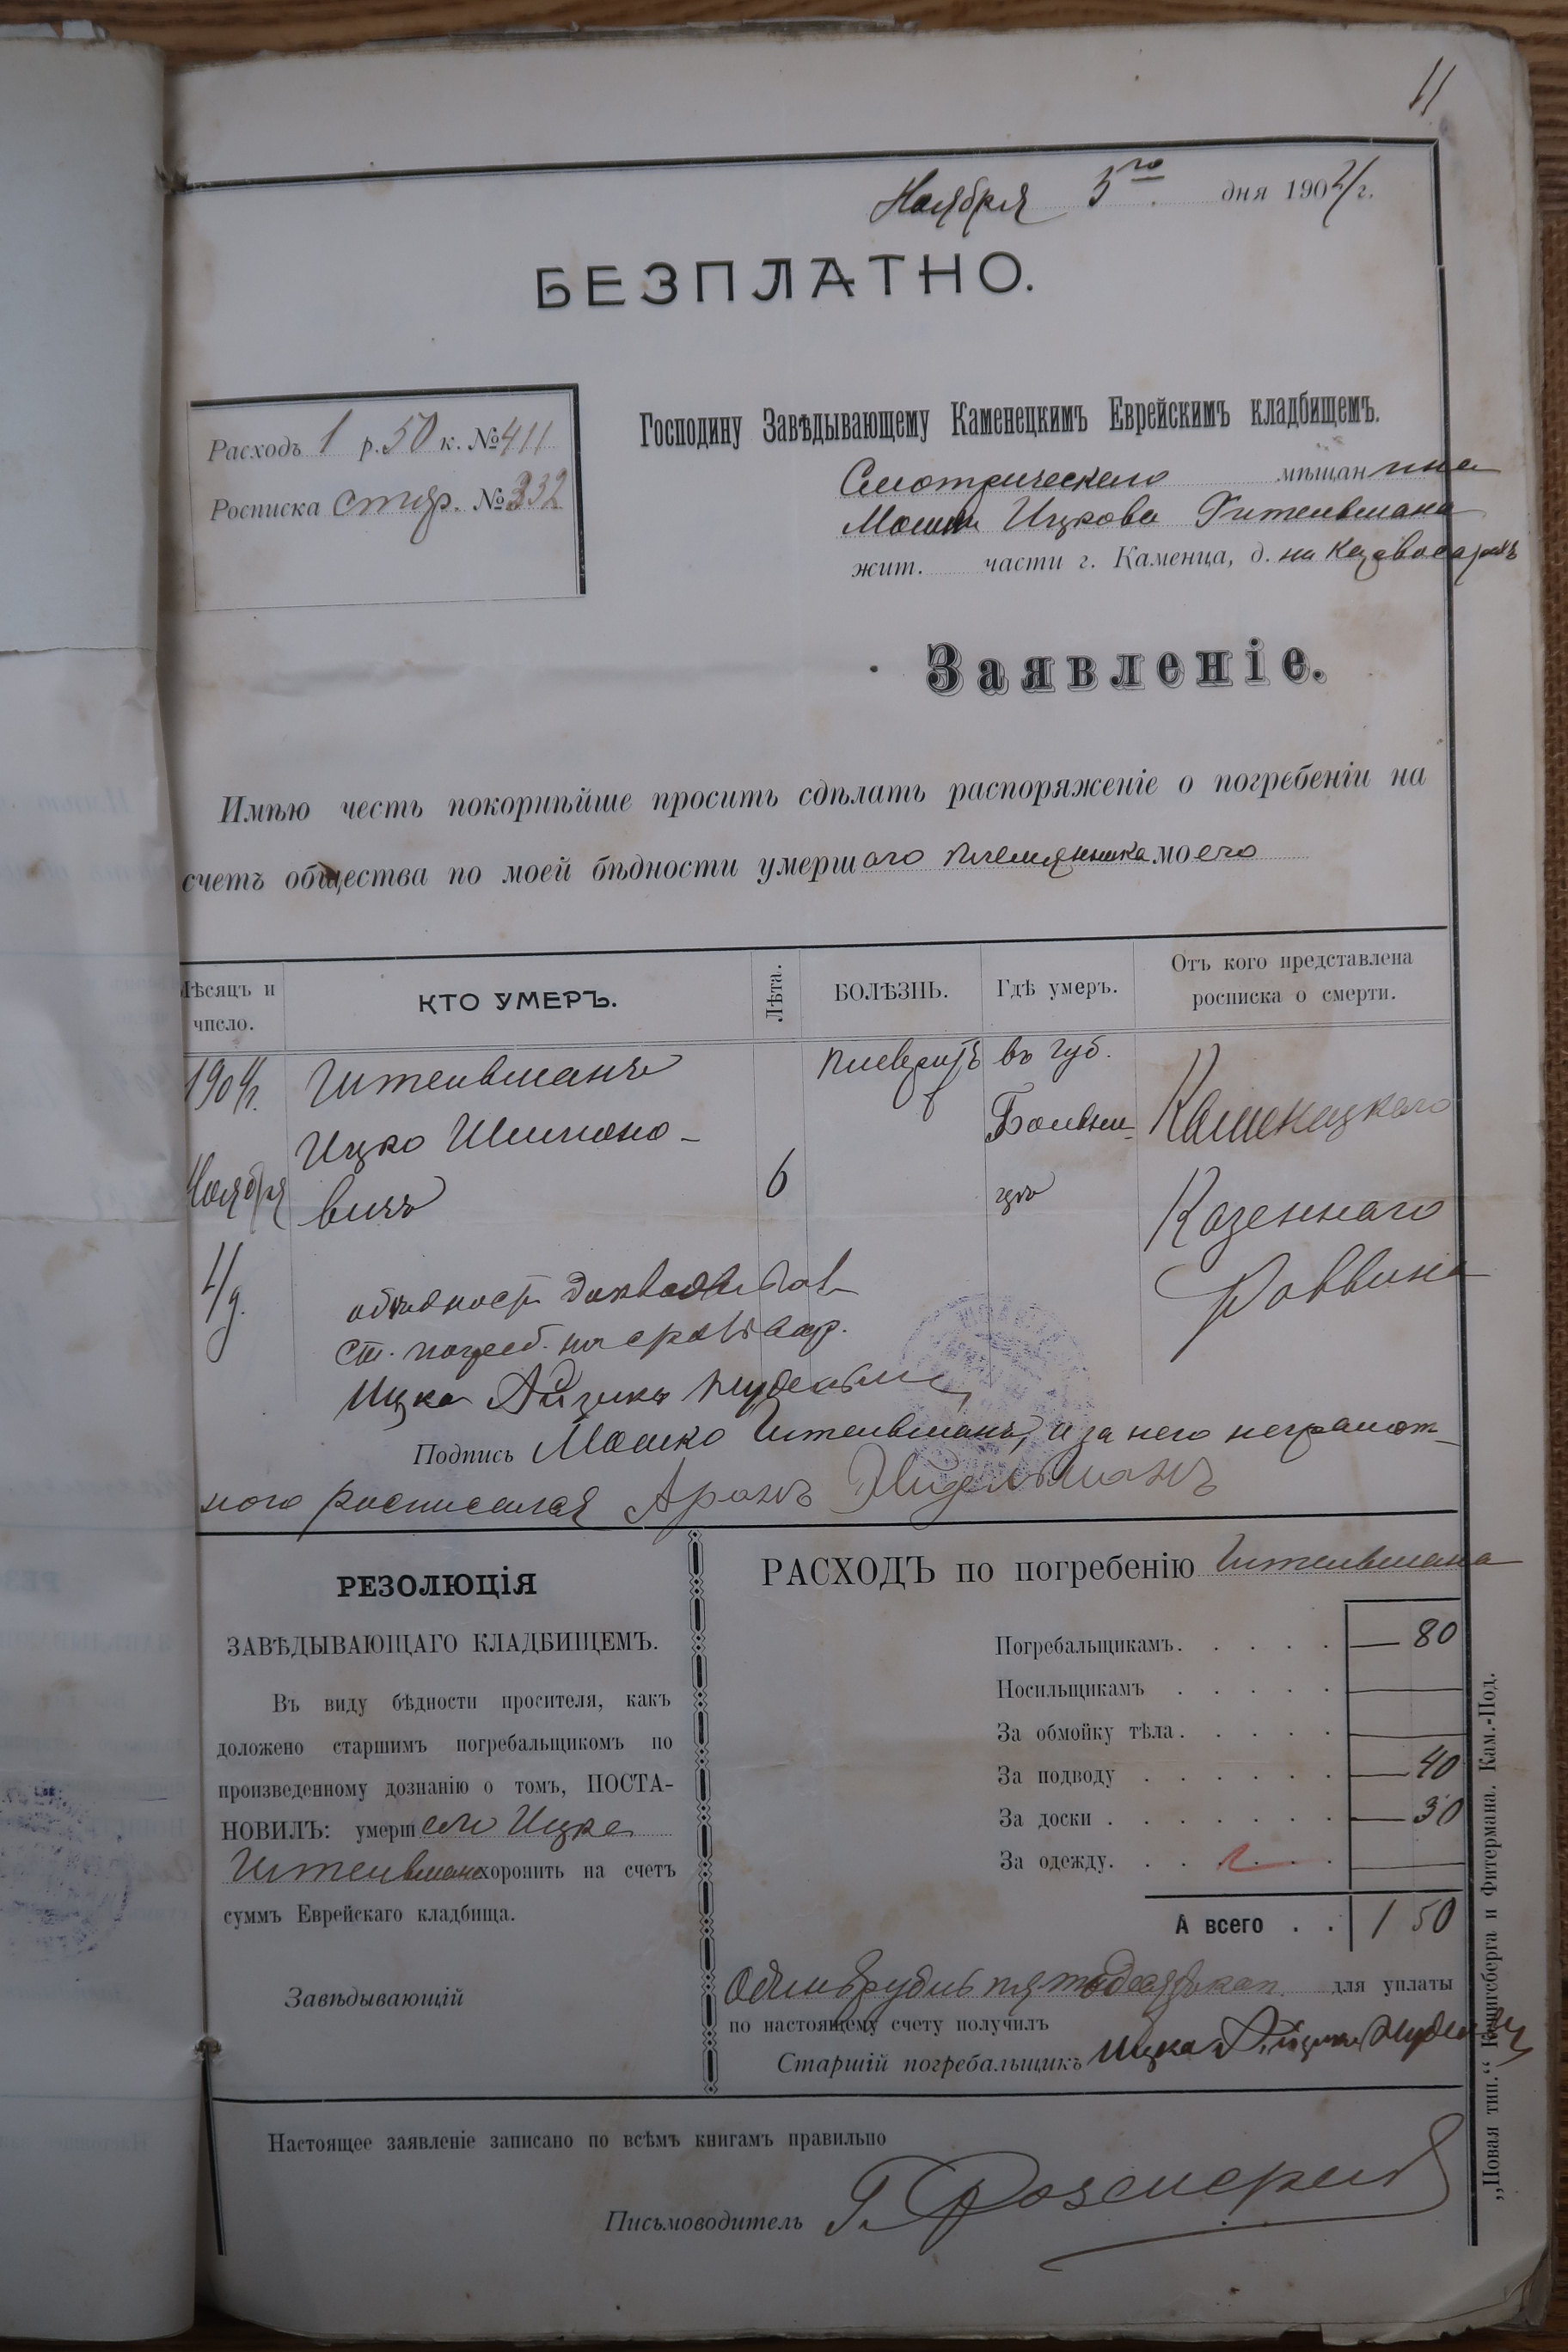 11
Ноября 5го дня 1904 г.
БЕЗПЛАТНО.
Расходъ 1 р. 50 к. № 411
Росписка стар. № 332
Господину Завѣдывающему Каменецкимъ Еврейскимъ кладбищемъ.
Смотрическаго мѣщанина
Мошки Ицкова Гительмана
жит. части г. Каменца, д. на
Заявленіе.
Имѣю честь покорнѣйше просить сдѣлать распоряженіе о погребеніи на
счетъ общества по моей бѣдности умершаго племянника моего
Мѣсяцъ и число.
КТО УМЕРЪ.
Лѣта.
БОЛѢЗНЬ.
Гдѣ умеръ.
Отъ кого представлена росписка о смерти.
1904 г. Гительманъ плевритъ въ губ. Каменецкаго
Ицко Шимоно- Больни-
Ноября вичъ 6 цѣ Казеннаго
4 д. Раввина
о бѣдности
ст. погреб.
Ицко Айзикъ
Подпись Мошко Гительманъ, а за него неграмот-
ного росписался Аронъ
РЕЗОЛЮЦІЯ
ЗАВѢДЫВАЮЩАГО КЛАДБИЩЕМЪ.
Въ виду бѣдности просителя, какъ
доложено старшимъ погребальщикомъ по
произведенному дознанію о томъ, ПОСТА-
НОВИЛЪ: умерш Ицко
Гительмана хоронить на счетъ
суммъ Еврейскаго кладбища.
Завѣдывающій
РАСХОДЪ по погребенію Гительмана
Погребальщикамъ. . . . . — 80
Носильщикамъ . . . . . —
За обмойку тѣла. . . . . —
За подводу . . . . . . — 40
За доски . . . . . . . — 30
За одежду. . . . . . —
А всего . . 1 50
Одинъ рубль пятьдесятъ коп. для уплаты
по настоящему счету получилъ
Старшій погребальщикъ Ицко Айзикъ
Настоящее заявленіе записано по всѣмъ книгамъ правильно
Письмоводитель Г.
„Новая тип.“ Кенигсберга и Фитермана. Кам.-Под.